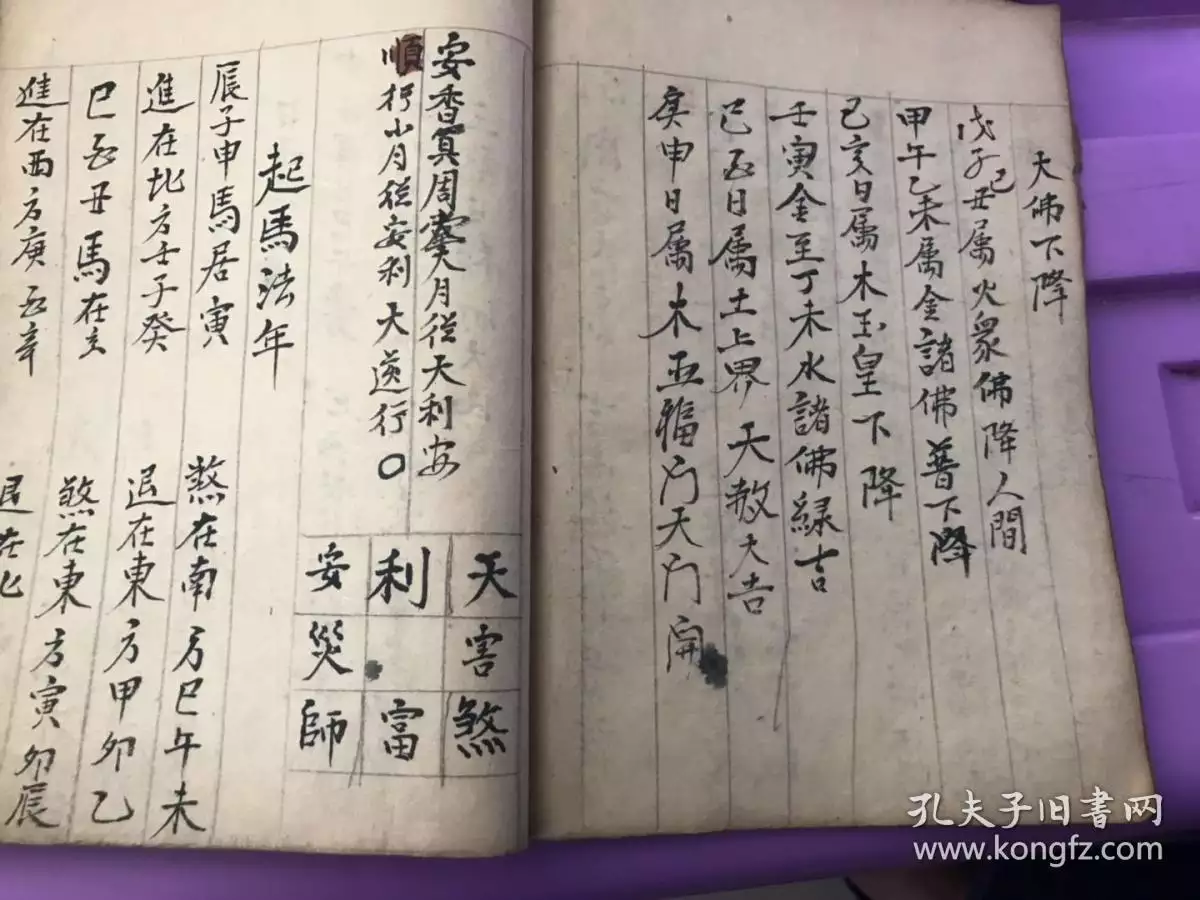 天佛下降
戊子己丑属火眾佛降人間
甲午乙未属金諸佛普下降
己亥日属木玉皇下降
壬寅金至丁未水諸佛緑吉
己丑日属土上界天赦大吉
庚申日属木五福门天门開
安香算周堂大月從天利安
順行小月從安利天逆行〇
天 利 安
害 災
煞 富 師
起馬法年
辰子申馬居寅 煞在南方巳午未
進在北方壬子癸 退在東方甲卯乙
巳酉丑馬在亥 煞在東方寅卯辰
進在西方庚酉辛 退在
孔夫子旧书网
www.kongfz.com